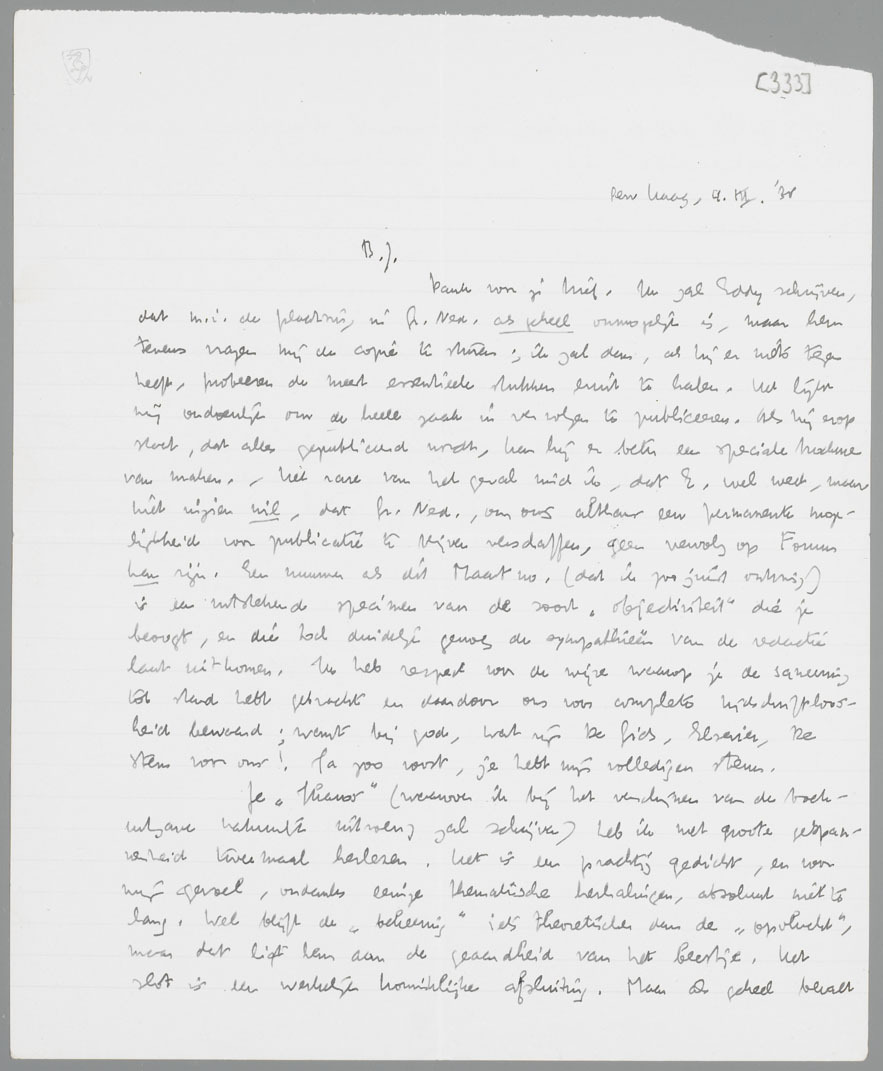 [333]
Den Haag, 9. III. '38
B.J.
Dank voor je brief. Ik zal Eddy schrijven,
dat m.i. de plaatsing in Gr. Ned. als geheel onmogelijk is, maar hem
tevens vragen mij de copie te sturen; ik zal dan, als hij er niets tegen
heeft, probeeren de meest essentieele stukken eruit te halen. Het lijkt
mij ondoenlijk om de heele zaak in vervolgen te publiceeren. Als hij erop
staat, dat alles gepubliceerd wordt, kan hij er beter een speciale brochure
van maken. - Het rare van het geval vind ik, dat E. wel weet, maar
niet inzien wil, dat Gr. Ned., om ons althans een permanente moge-
lijkheid voor publicatie te blijven verschaffen, geen vervolg op Forum
kan zijn. Een nummer als dit Maart no. (dat ik zoojuist ontving)
is een uitstekend specimen van de soort "objectiviteit" die je
beoogt, en die toch duidelijk genoeg de sympathieën van de redactie
laat uitkomen. Ik heb respect voor de wijze waarop je de saneering
tot stand hebt gebracht en daardoor ons voor complete tijdschriftloos-
heid bewaard; want bij god, wat zijn De Gids, Elsevier, De
Stem voor ons! Ga zoo voort, je hebt mijn volledigen steun.
Je " " (waarover ik bij het verschijnen van de boek-
uitgave natuurlijk uitvoerig zal schrijven) heb ik met groote gespan-
nenheid tweemaal herlezen. Het is een prachtig gedicht, en voor
mijn gevoel, ondanks eenige thematische herhalingen, absoluut niet te
lang. Wel blijft de " " iets theoretischer dan de "opvlucht",
maar dat ligt hem aan de geaardheid van het beestje. Het
slot is een werkelijk koninklijke afsluiting. Maar als geheel bevalt